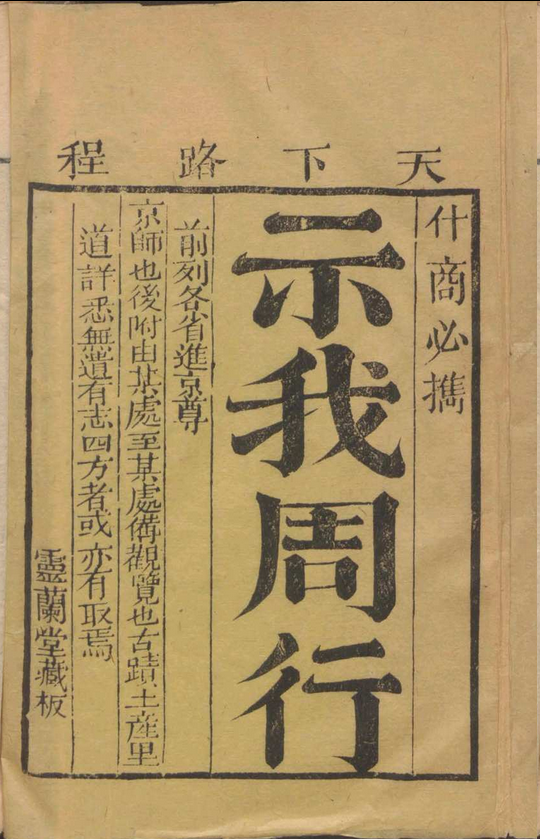 天下路程
什商必攜
示我周行
前列各省進京尊
京師也後附由某處至某處備觀覽也古蹟土產里
道詳悉無遺有志四方者或亦有取焉
靈蘭堂藏板